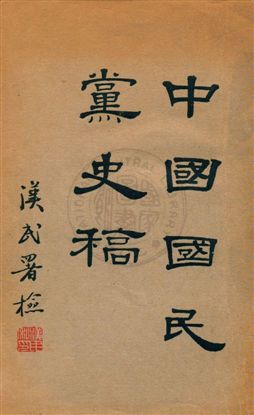 中國國民
黨史稿
漢民署檢